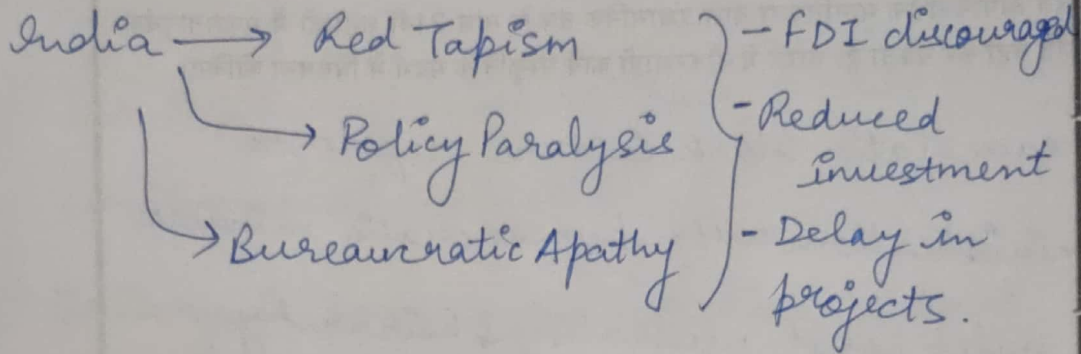 India → Red Tapism
→ Policy Paralysis
→ Bureaucratic Apathy
- FDI discouraged
- Reduced
investment
- Delay in
projects.